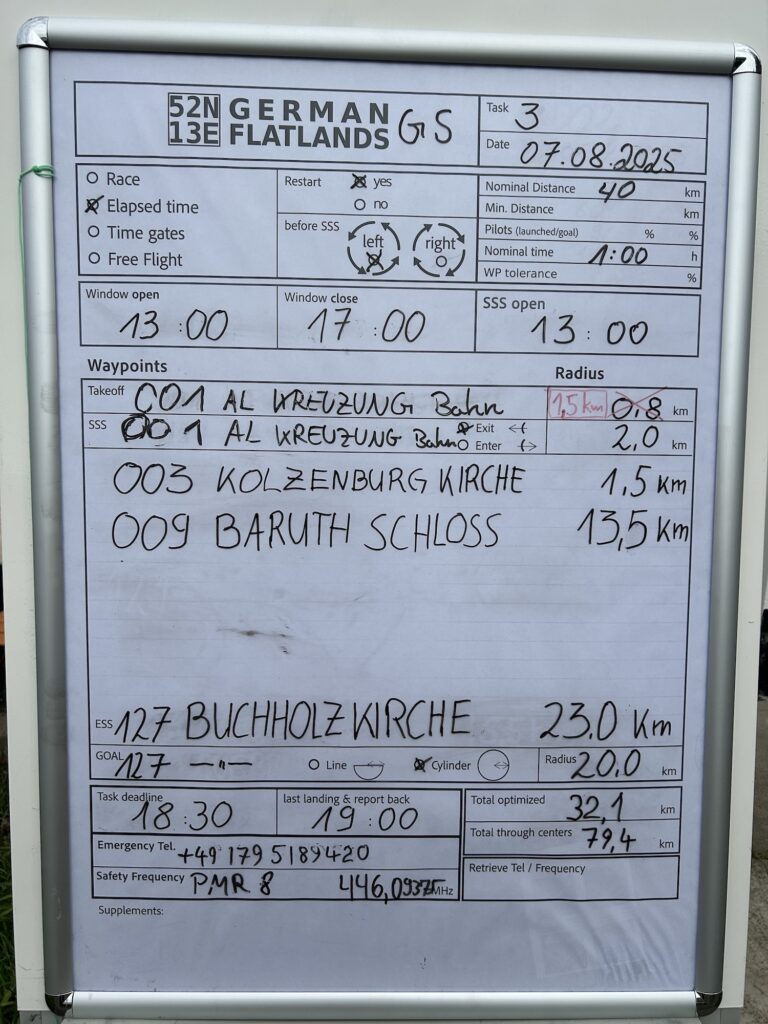 52N GERMAN GS
13E FLATLANDS
Task 3
Date 07.08.2025
Race
Elapsed time
Time gates
Free Flight
Restart yes
no
before SSS left right
Nominal Distance 40 km
Min. Distance km
Pilots (launched/goal) % %
Nominal time 1:00 h
WP tolerance %
Window open 13:00
Window close 17:00
SSS open 13:00
Waypoints Radius
Takeoff 001 AL KREUZUNG Bahn 1,5 km 0,8 km
SSS 001 AL KREUZUNG Bahn Exit Enter 2,0 km
003 KOLZENBURG KIRCHE 1,5 Km
009 BARUTH SCHLOSS 13,5 Km
ESS 127 BUCHHOLZ KIRCHE 23.0 Km
GOAL 127 —"— Line Cylinder Radius 20.0 km
Task deadline 18:30
last landing & report back 19:00
Total optimized 32,1 km
Total through centers 79,4 km
Emergency Tel. +49 179 5189420
Safety Frequency PMR 8 446,09375 MHz
Retrieve Tel / Frequency
Supplements: